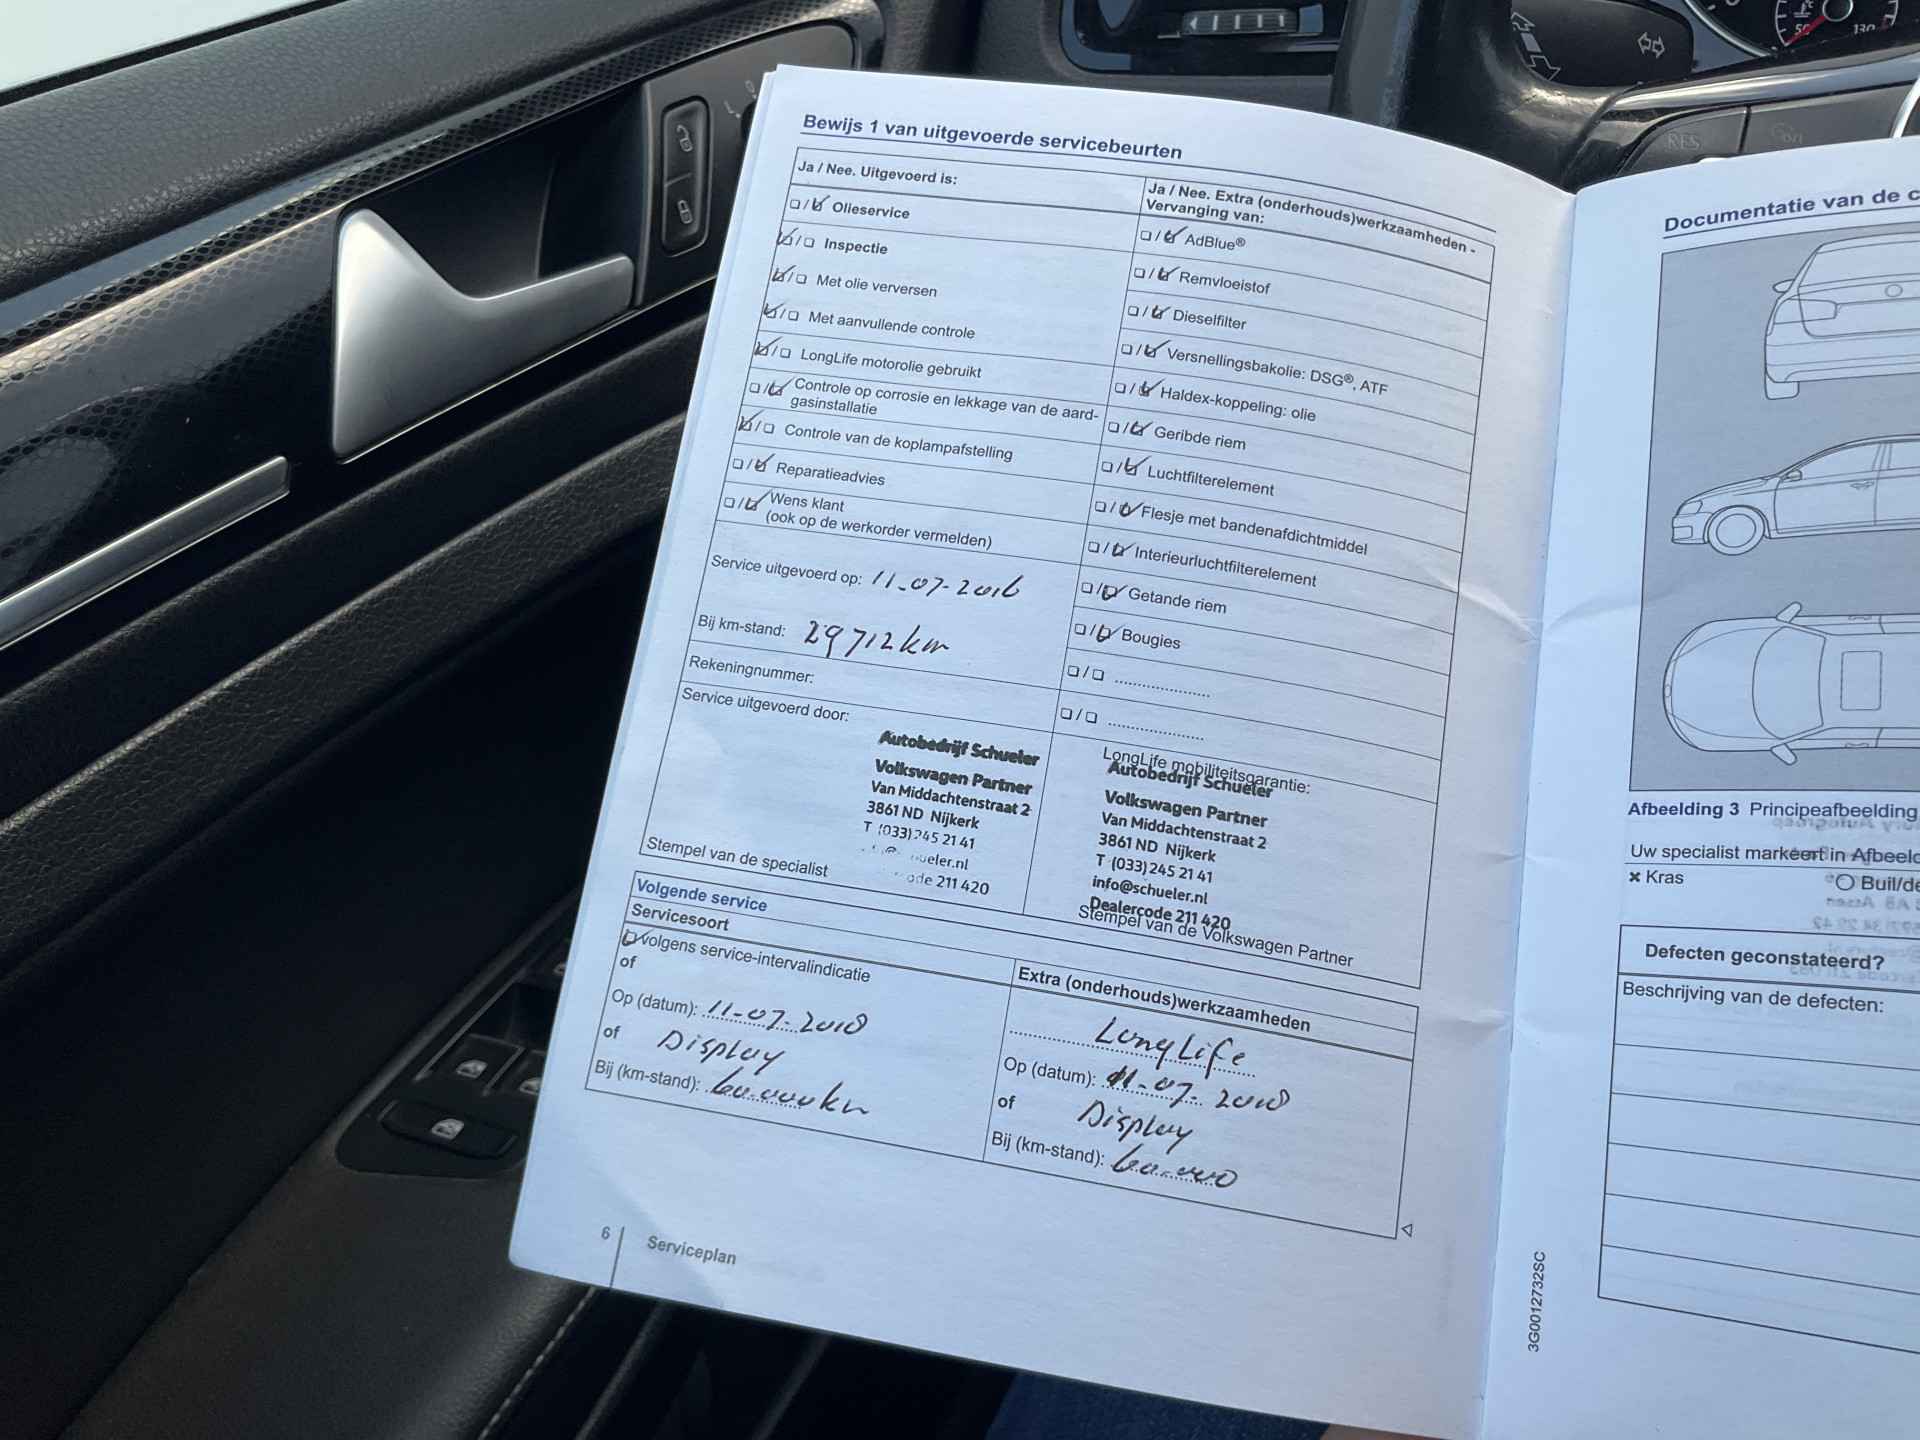 Bewijs 1 van uitgevoerde servicebeurten
Ja / Nee. Uitgevoerd is:
☐/☑ Olieservice
☑/☐ Inspectie
☑/☐ Met olie verversen
☑/☐ Met aanvullende controle
☑/☐ LongLife motorolie gebruikt
☐/☑ Controle op corrosie en lekkage van de aard-
gasinstallatie
☑/☐ Controle van de koplampafstelling
☐/☑ Reparatieadvies
☐/☑ Wens klant
(ook op de werkorder vermelden)
Service uitgevoerd op: 11-07-2016
Bij km-stand: 29712 km
Rekeningnummer:
Service uitgevoerd door:
Autobedrijf Schueler
Volkswagen Partner
Van Middachtenstraat 2
3861 ND Nijkerk
T (033) 245 21 41
ueler.nl
ode 211 420
Stempel van de specialist
Ja / Nee. Extra (onderhouds)werkzaamheden -
Vervanging van:
☐/☑ AdBlue®
☐/☑ Remvloeistof
☐/☑ Dieselfilter
☐/☑ Versnellingsbakolie: DSG®, ATF
☐/☑ Haldex-koppeling: olie
☐/☑ Geribde riem
☐/☑ Luchtfilterelement
☐/☑ Flesje met bandenafdichtmiddel
☐/☑ Interieurluchtfilterelement
☐/☑ Getande riem
☐/☑ Bougies
☐/☐ ....................
☐/☐ ....................
LongLife mobiliteitsgarantie:
Autobedrijf Schueler
Volkswagen Partner
Van Middachtenstraat 2
3861 ND Nijkerk
T (033) 245 21 41
info@schueler.nl
Dealercode 211 420
Stempel van de Volkswagen Partner
Volgende service
Servicesoort
☑ volgens service-intervalindicatie
of
Op (datum): 11-07-2018
of Display
Bij (km-stand): 60.000 km
Extra (onderhouds)werkzaamheden
LongLife
Op (datum): 11-07-2018
of Display
Bij (km-stand): 60.000
6 Serviceplan
Documentatie van de c
Afbeelding 3 Principeafbeelding
Uw specialist markeert in Afbeeld
× Kras
Buil/de
Defecten geconstateerd?
Beschrijving van de defecten:
3G0012732SC
RES
on
50
130